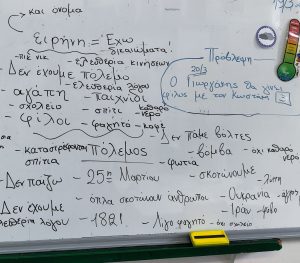 → και όνομα
Ειρήνη = Έχω δικαιώματα:
- πιε νικ - ελευθερία κινήσεων
Δεν έχουμε πόλεμο
- ελευθερία λόγου
- αγάπη - παιχνίδι
- σχολείο - σπίτι - καθαρό νερό
- φίλοι - φαγητό - καφέ
Πρόβλεψη
20/3
Ο Γιωργάκης θα γίνει φίλος με τον Κωσταντή
- Δεν πάμε βόλτες
Πόλεμος
- καταστρέφονται σπίτια
- βόμβα - όχι καθαρό νερό
- φωτιά
- σκοτώνουμε
- Δεν παίζω - 25η Μαρτίου
- λύπη
- Δεν έχουμε ελευθερία λόγου
- όπλα σκοτώνουν άνθρωποι
- Ουκρανία
- 1821
- Λίγο φαγητό - όχι σχολείο
- Ιράν - φόβο